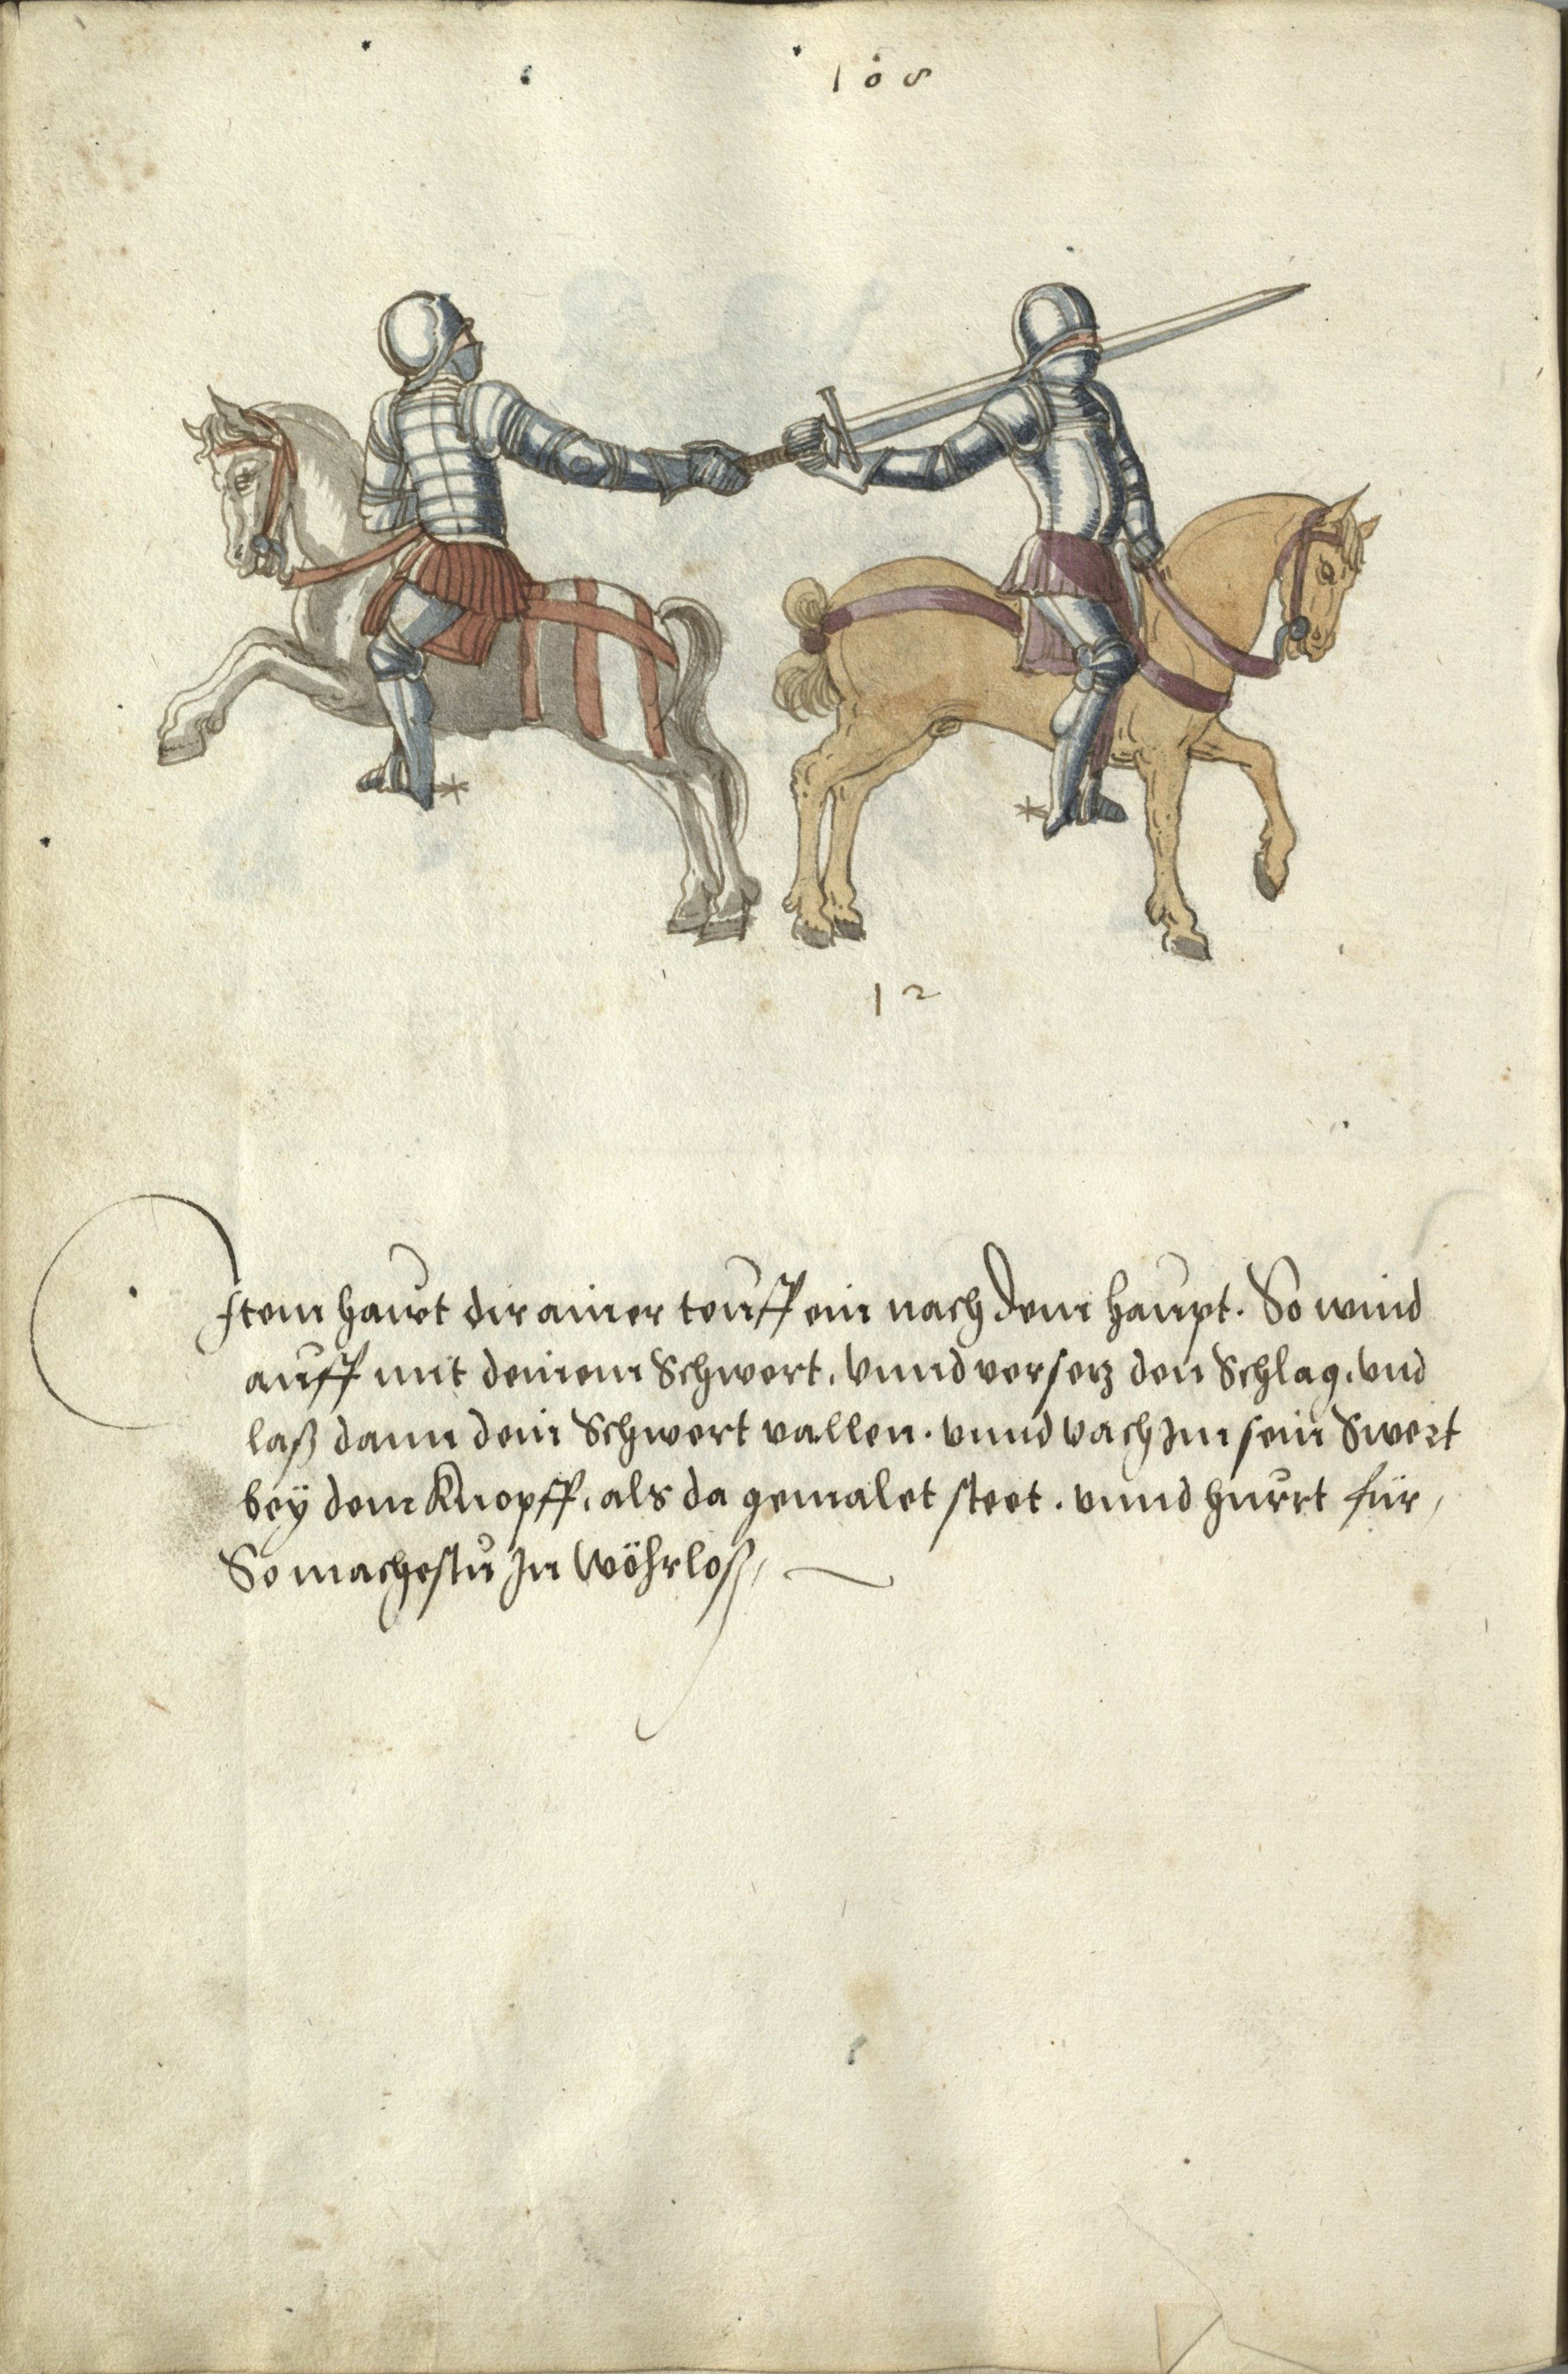 108
12
Item hawt dir ainer teuff ein nach dem haupt. So wind
auff mit deinem Schwert, vnnd versetz den Schlag, vnd
laß dann dein Schwert vallen. vnnd vach Im sein Swert
bey dem Knopff, als da gemalet steet. vnnd hurrt für,
So machestu In wöhrloß,